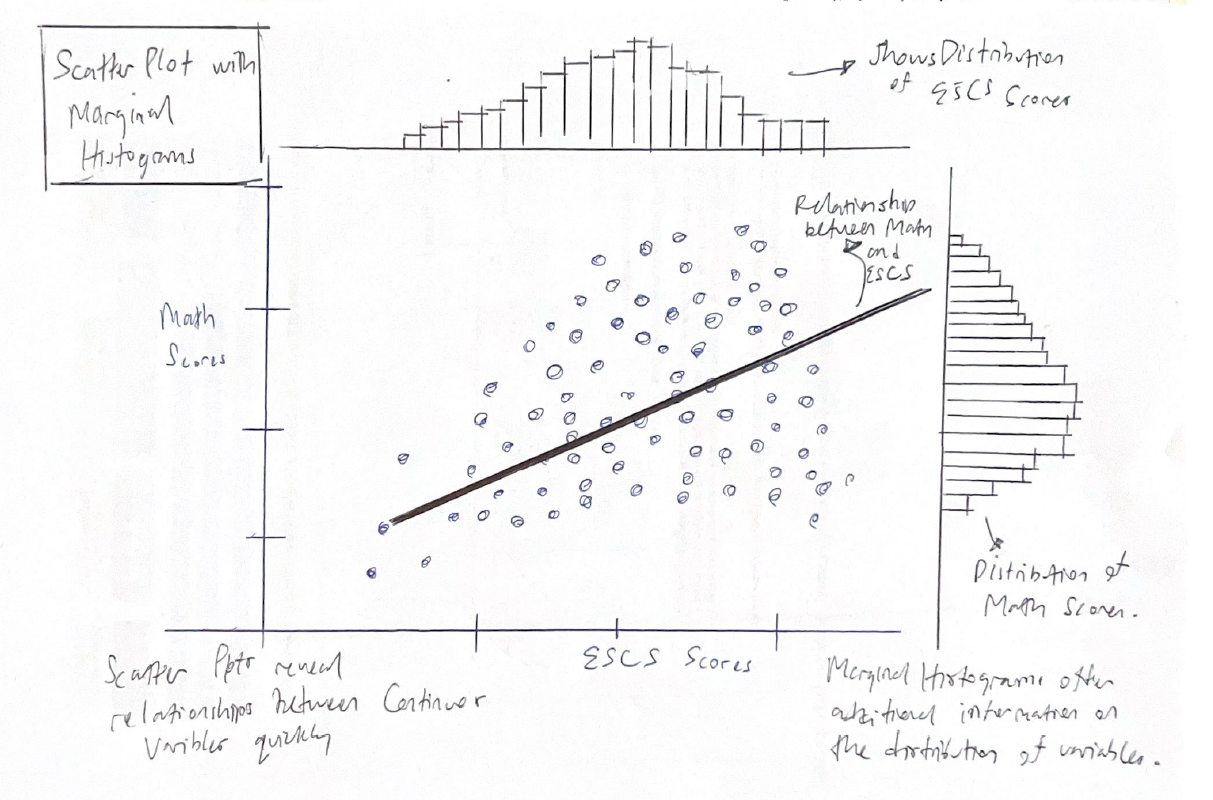 Scatter Plot with
Marginal
Histograms
Shows Distribution
of ESCS Scores
Relationship
between Math
and
ESCS
Math
Scores
ESCS Scores
Distribution of
Math Scores.
Scatter Plots reveal
relationships between Continuous
Varibles quickly
Marginal Histograms offer
additional information on
the distribution of variables.